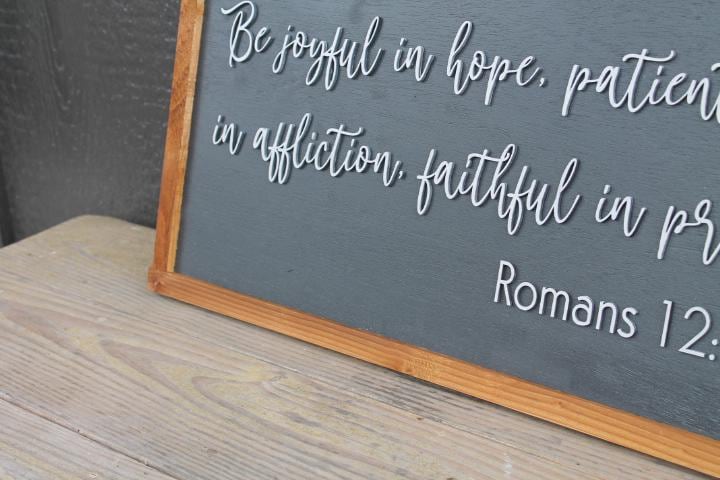 Be joyful in hope, patient
in affliction, faithful in pr
Romans 12: